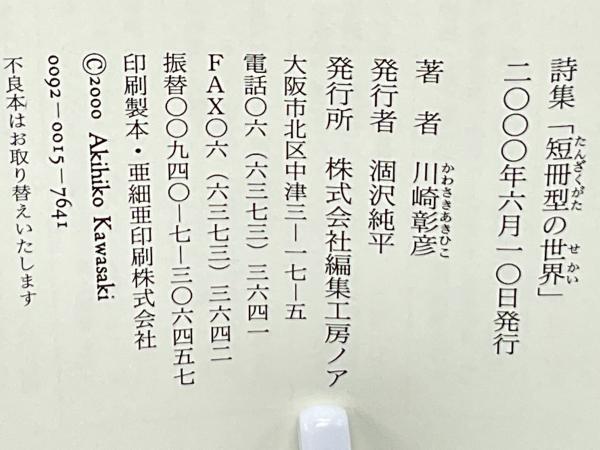 詩集「短冊型の世界」
たんざくがた せかい
二〇〇〇年六月一〇日発行
著者 川崎彰彦
かわさきあきひこ
発行者 涸沢純平
発行所 株式会社編集工房ノア
大阪市北区中津三―一七―五
電話〇六(六三七三)三六四一
FAX〇六(六三七三)三六四二
振替〇〇九四〇―七―三〇六四五七
印刷製本・亜細亜印刷株式会社
©2000 Akihiko Kawasaki
0092―0015―7641
不良本はお取り替えいたします